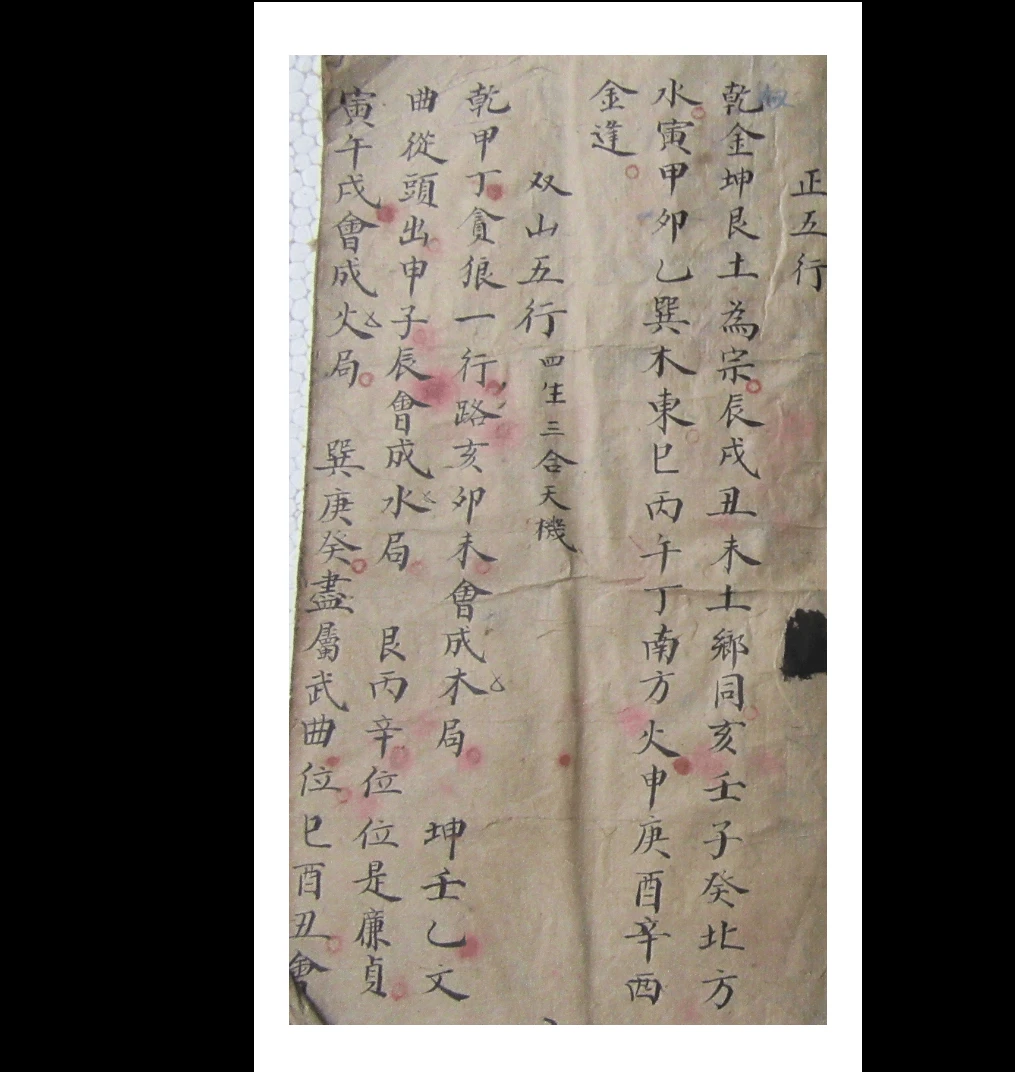 正五行
乾金坤艮土為宗辰戌丑未土鄉同亥壬子癸北方
水寅甲卯乙巽木東巳丙午丁南方火申庚酉辛西
金逢
双山五行四生三合天機
乾甲丁貪狼一行路亥卯未會成木局 坤壬乙文
曲從頭出申子辰會成水局 艮丙辛位位是廉貞
寅午戌會成火局 巽庚癸盡屬武曲位巳酉丑會